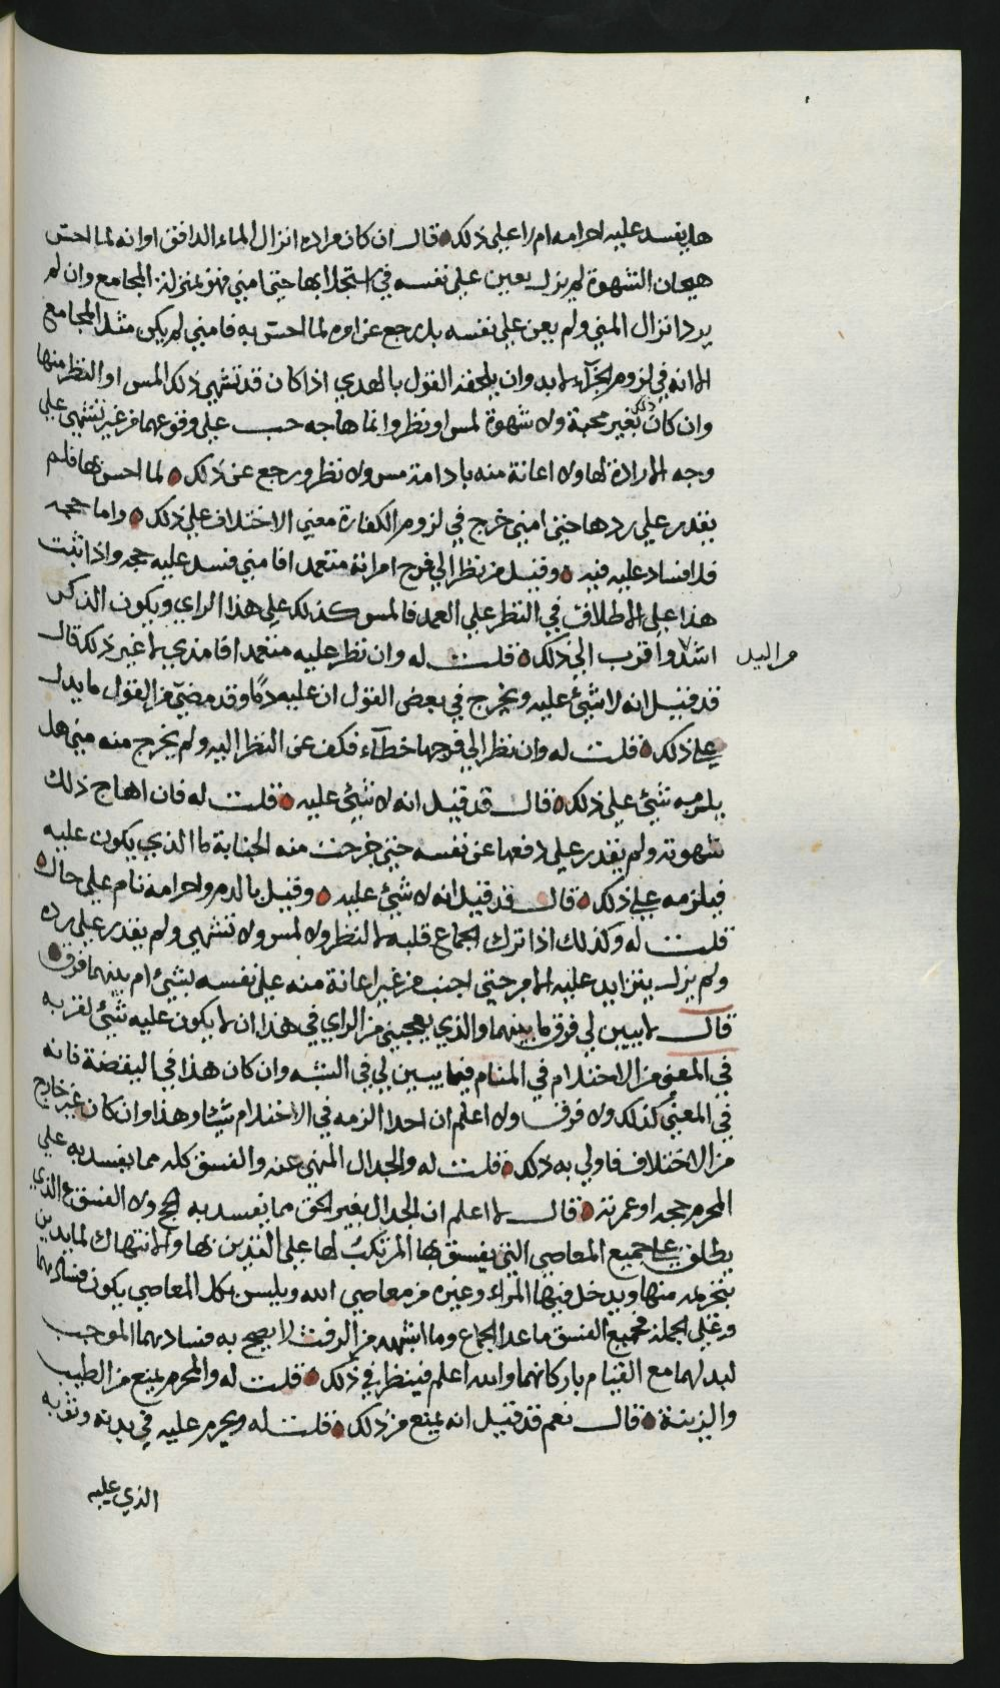 هل يفسد عليه احرامه ام لا على ذلك قال ان كان مراده انزال الماء الدافق اوانه لما احس
هيجان الشهوة لم يزل يعين على نفسه في استجلابها حتى امنى فهو بمنزلة المجامع وان لم
يرد انزال المني ولم يعن على نفسه بل رجع عن امره لما احس به فامنى لم يكن مثل المجامع
الا انه في لزوم الجزآء لابد وان يلحقه القول بالهدي اذا كان قد تشهى ذلك المس او النظر منها
وان كان ذلك بغير محبة ولا شهوة لمس او نظر وانما هاجه حب على وقوعهما من غير تشهى على
وجه الارادة لها ولا اعانة منه بادامة مس ولا نظر ورجع عن ذلك لما احس بها فلم
يقدر على ردها حتى امنى خرج في لزوم الكفارة معنى الاختلاف على ذلك واما حجه
فلا فساد عليه فيه وقيل من نظر الى فرج امرأته متعمدا فامنى فسد عليه حجه واذا ثبت
هذا على الاطلاق في النظر على العمد فالمس كذلك على هذا الراي ويكون الذكر
اشد واقرب الى ذلك قلت له وان نظر عليه متعمدا فامذى لا غير ذلك قال
من اليد
قد قيل انه لا شئ عليه ويخرج في بعض القول ان عليه دمًا وقد مضى من القول ما يدل
على ذلك قلت له وان نظر الى فرجها خطآء فكف عن النظر اليه ولم يخرج منه منى هل
يلزمه شئ على ذلك قال قد قيل انه لا شئ عليه قلت له فان اهاج ذلك
شهوته ولم يقدر على دفعها عن نفسه حتى خرجت منه الجنابة ما الذي يكون عليه
فيلزمه على ذلك قال قد قيل انه لا شئ عليه وقيل بالدم واحرامه تام على حال
قلت له وكذلك اذا ترك الجماع قلبه لا لنظر ولا لمس ولا تشهى ولم يقدر على رده
ولم يزل يتزايد عليه الامر حتى اجنب من غير اعانة منه على نفسه بشئ ام بينهما فرق
قال لا يبين لي فرق ما بينهما والذي يعجبني من الراي في هذا ان لا يكون عليه شئ لقربه
في المعنى من الاحتلام في المنام فيما يبين لي في الشبه وان كان هذا في اليقضة فانه
في المعنى كذلك ولا فرق ولا اعلم ان احدا الزمه في الاحتلام شيئا وهذا وان كان غير خارج
من الاختلاف فاولى به ذلك قلت له والجدال المنهى عنه والفسق كله مما يفسد به على
المحرم حجه او عمرته قال لا اعلم ان الجدال بغير الحق مما يفسد به الحج ولا الفسق مع الذي
يطلق على جميع المعاصي التي يفسق بها المرتكب لها على التدين بها والانتهاك لما يدين
بتحريمه منها ويدخل فيها المراء وغيره من معاصي الله وليس بكل المعاصي يكون فسادهما
وعلى الجملة فجميع الفسق ما عدا الجماع وما اشبهه من الرفث لا يصح به فسادهما الموجب
لبدلهما مع القيام باركانهما والله اعلم فينظر في ذلك قلت له والمحرم يمنع من الطيب
والزينة قال نعم قد قيل انه يمنع من ذلك قلت له ويحرم عليه في بدنه وثوبه
الذي عليه